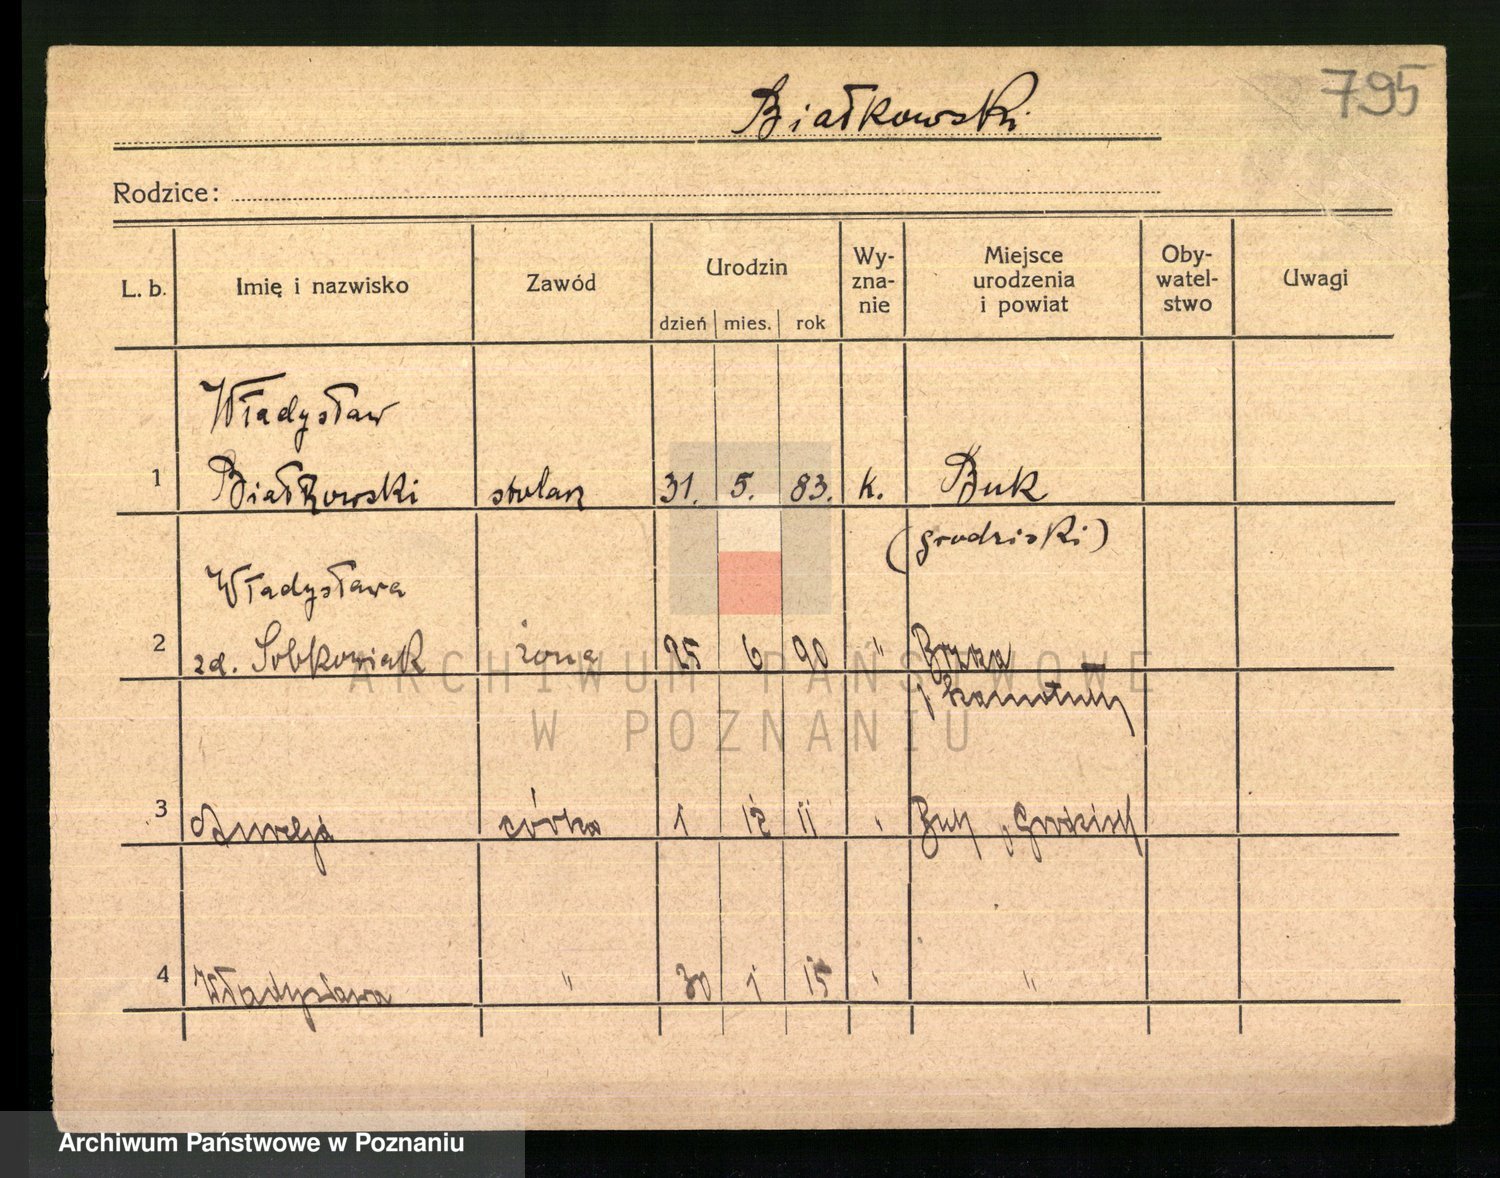 795
Białkowski
Rodzice:
L. b. Imię i nazwisko Zawód Urodzin dzień mies. rok Wy-zna-nie Miejsce urodzenia i powiat Oby-watel-stwo Uwagi
Władysław
1 Białkowski stolarz 31. 5. 83. k. Buk
(grodziski)
Władysława
2 zd. Sobkowiak żona 25 6 90 "
ARCHIWUM PAŃSTWOWE
W POZNANIU
3 córka 1 12 11 "
4 Władysława " 30 1 15 " "
Archiwum Państwowe w Poznaniu